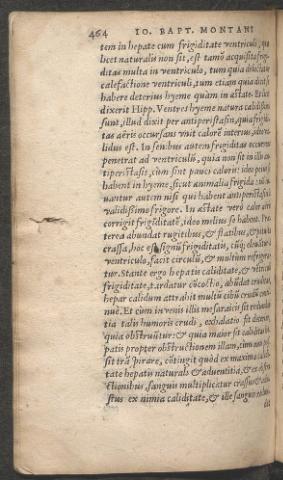 464 IO. BAPT. MONTANI
tem in hepate cum frigiditate ventriculi,
licet naturalis non sit, est tamē acquisita frigi
ditas multa in ventriculo, tum quia
calefactione ventriculi, tum etiam quia dicit
habere deterius hyeme quàm in æstate.
dixerit Hipp. Ventres hyeme natura calidiores
sunt, illud dixit per antiperistasin, quia frigidi
tas aëris occursans vnit calorē interius,
lidus est. In senibus autem frigiditas occurrens
penetrat ad ventriculū, quia non fit in illis an
tiperistasis, cùm sint pauci caloris: ideo
habent in hyeme, sicut animalia frigida
uantur autem nisi qui habent antiperistasin
validissimo frigore. In æstate verò calor aëris
corrigit frigiditatē, ideo melius se habent. Præ
terea abundat rugitibus, & flatibus,
crassa, hoc est signū frigiditatis,
ventriculo, facit circulū, & multùm refrigera
tur. Stante ergo hepatis caliditate, & vētriculi
frigiditate, tardatur cōcoctio,
hepar calidum attrahit multū cibū crudū conti
nuè. Et cùm in venis illis mesaraicis sit
tia talis humoris crudi, exhalatio fit
quia obstruūtur: & quia maior fit caliditas he
patis propter obstructionem illam,
sit trāspirare, cōtingit quòd ex maxima calidi
tate hepatis naturali & aduentitia, & ex
ctionibus, sanguis multiplicatur crassus &
stus ex nimia caliditate, & ille sanguis